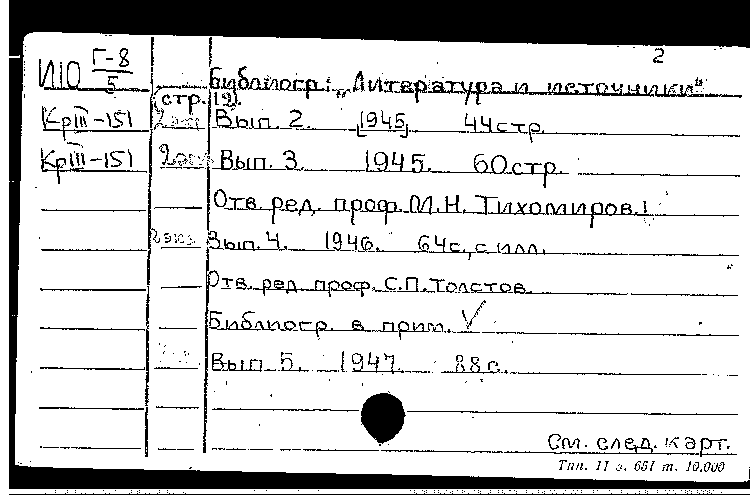 2
И10 Г-8/5
Библиогр.: „Литература и источники"
(стр. 12).
КрIII-151 2 экз Вып. 2. [1945] 44 стр.
КрIII-151 2 экз Вып. 3. 1945. 60 стр.
Отв. ред. проф. М.Н. Тихомиров.
2 экз. Вып. 4. 1946. 64 с., с илл.
Отв. ред. проф. С.П. Толстов.
Библиогр. в прим. √
Вып. 5. 1947. 88 с.
См. след. карт.
Тип. 11 з. 661 т. 10.000